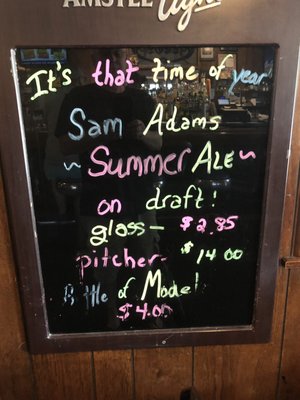 AMSTEL Light
It's that time of year
Sam Adams
~ Summer Ale ~
on draft!
glass - $2.85
pitcher - $14.00
Bottle of Model
$4.00